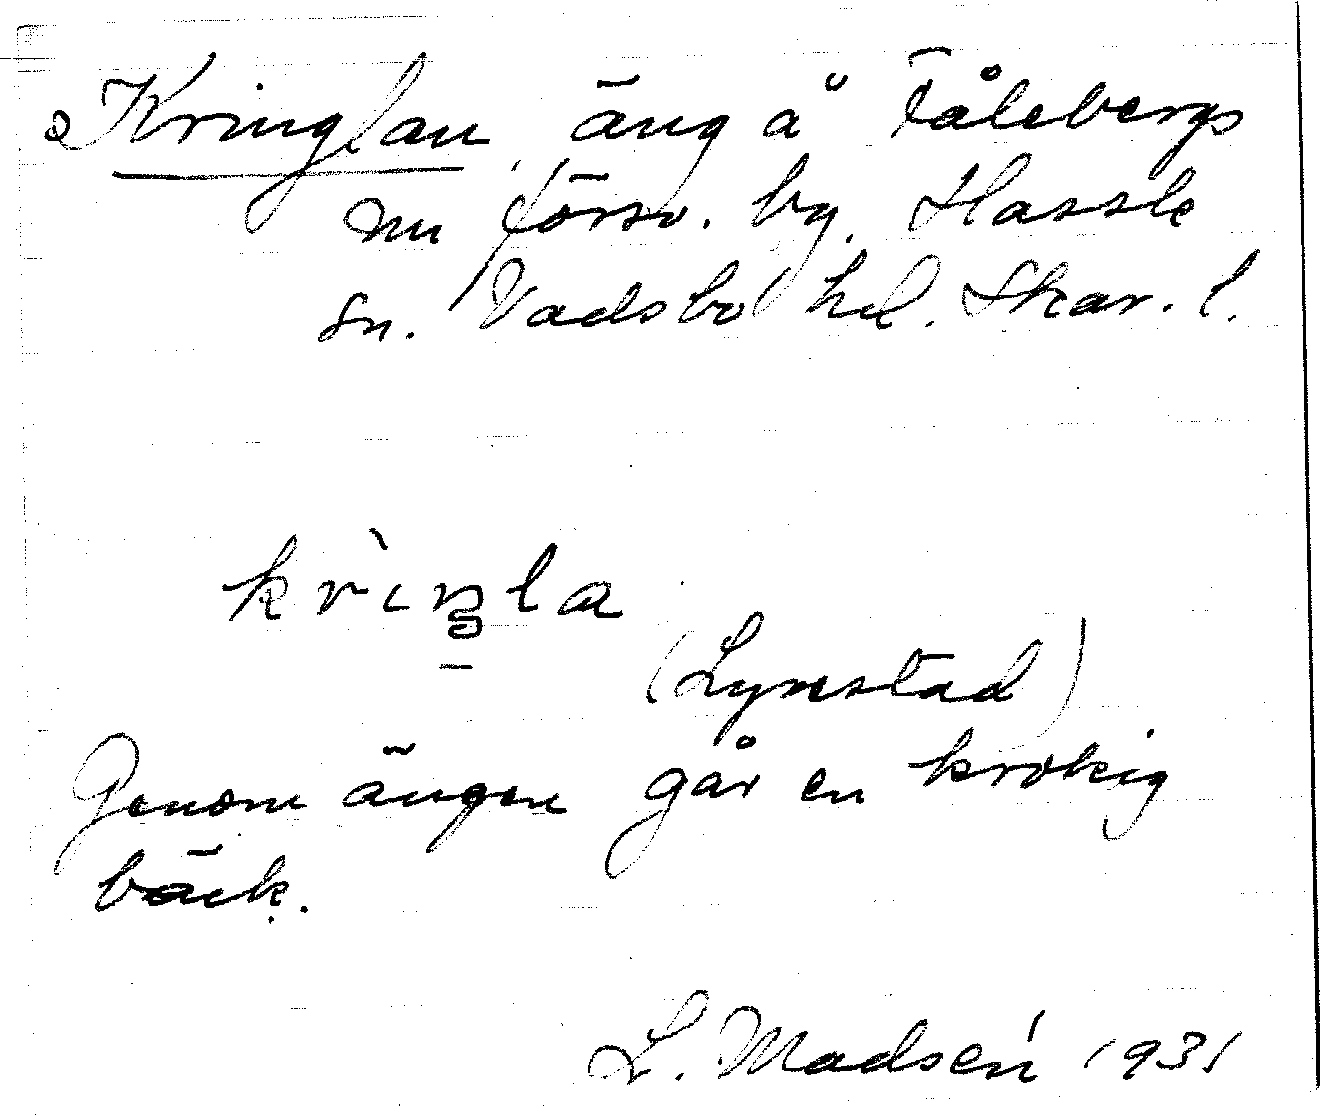 Kringlan, äng å Fålebergs
nu försv. by. Hassle
sn. Vadsbo hd. Skar. l.
krìŋla
(Lyrestad)
Genom ängen går en krokig
bäck.
L. Madsén 1931